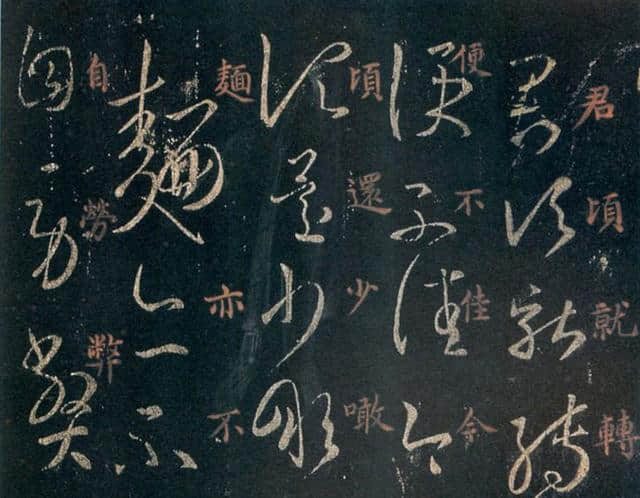 君頃就轉
便不佳令
頃還少噉
麵亦不
自勞弊